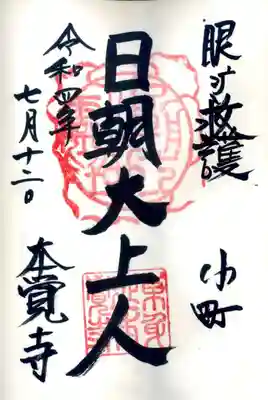 眼病救護
小町
日朝大上人
令和四年
七月十二日
本覚寺